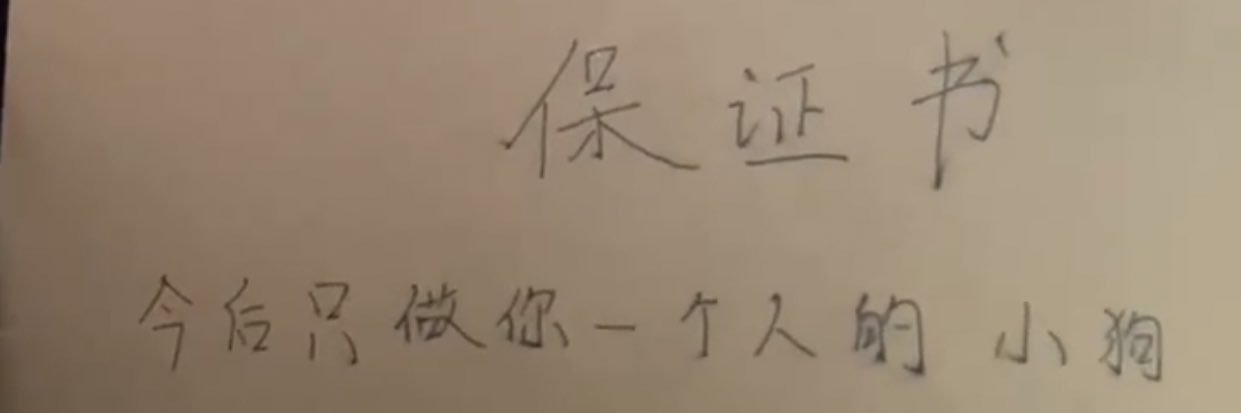 保证书
今后只做你一个人的小狗